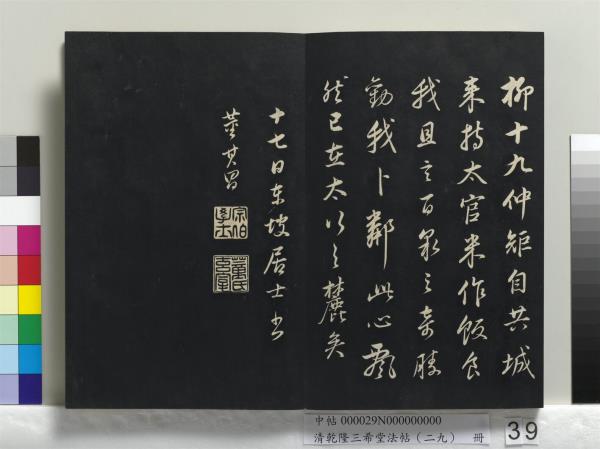 柳十九仲矩自共城
來持太官米作飯食
我且言百泉之奇勝
勸我卜鄰此心飄
然已在太行之麓矣
十七日東坡居士書
董其昌
宗伯學士
董氏玄宰
中帖 000029N000000000
清乾隆三希堂法帖（二九） 冊
39